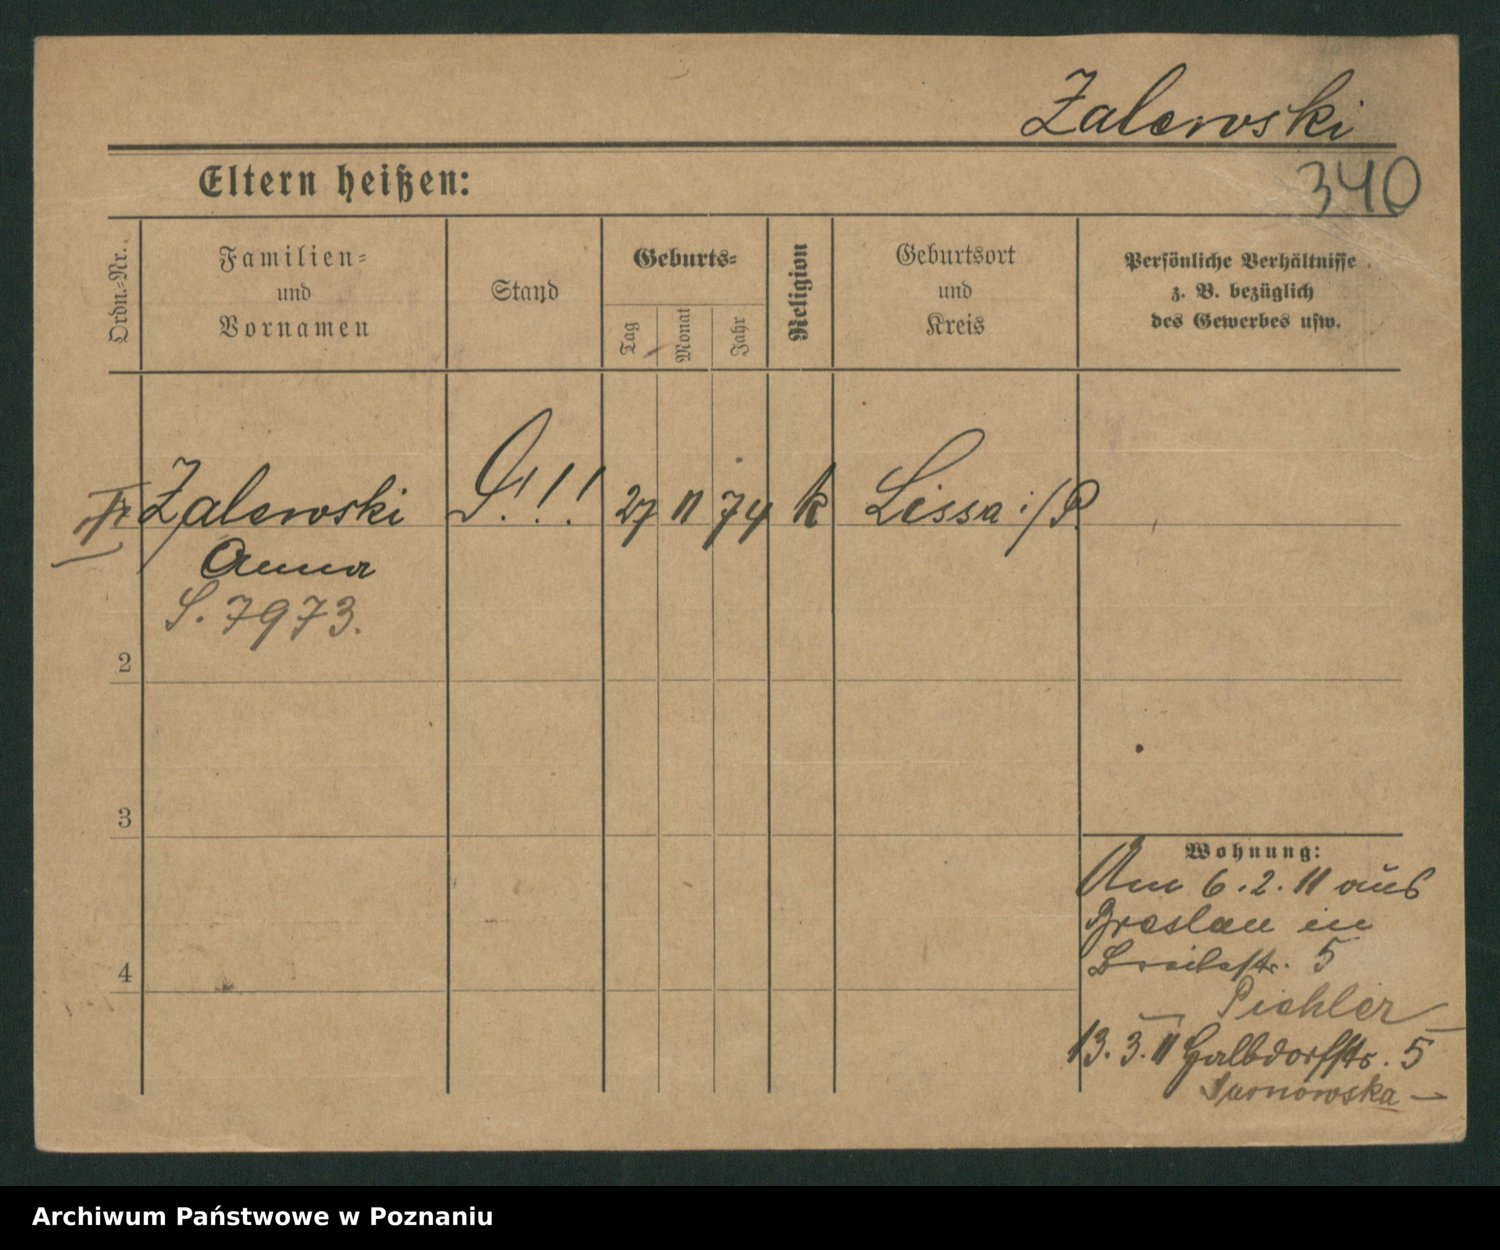 Zalewski
340
Eltern heißen:
Ordn.-Nr.
Familien-
und
Vornamen
Stand
Geburts-
Tag
Monat
Jahr
Religion
Geburtsort
und
Kreis
Persönliche Verhältnisse
z. B. bezüglich
des Gewerbes usw.
Zalewski S!!! 27 11 74 k Lissa i/P.
Anna
S. 7973.
2
3
4
Wohnung:
Am 6.2.11 aus
Breslau in
Breitestr. 5
Pichler
13.3.11 Halbdorfstr. 5
Archiwum Państwowe w Poznaniu